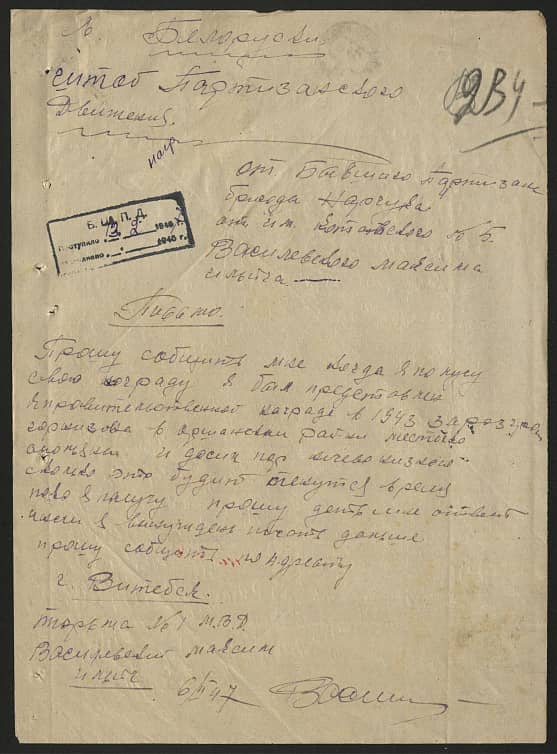 Белоруски
штаб Партизанского
Движения.
нагр
2В4
от Бывшего Партизан
бригада Нарчука
отр им. Котовского № 5.
Василевского максима
ильича
Б. Ш. П. Д.
Поступило
194
1940 г.
Писмо.
Прошу собщить мне когда я получу
свою награду я был представлен
к правительственой награде в 1943 за розгром
гарнизона в оршанском
и досих пор ничево низнаю
сколко это будит тянутся время
пока я получу прошу дать мне ответ
я вынужден писать дальше
прошу собщить по адресу
г. Витебск.
тюрьма №1 М.В.Д.
Василевский максим
ильич
6/II 47